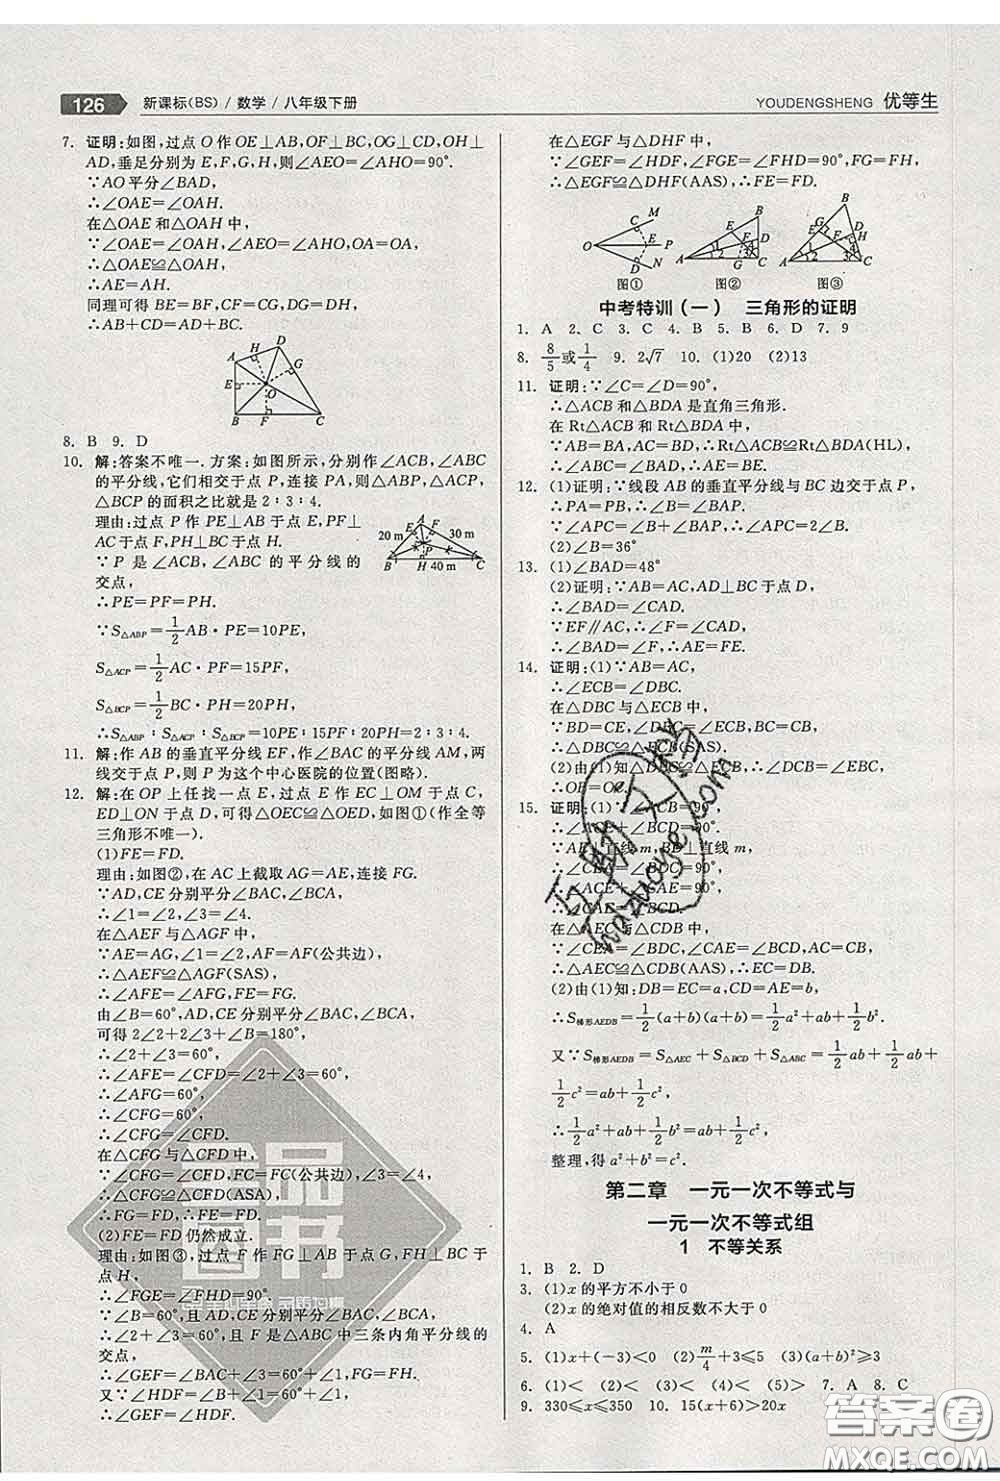 126 新课标(BS)/数学/八年级下册
YOUDENGSHENG 优等生
7. 证明:如图,过点O作OE⊥AB,OF⊥BC,OG⊥CD,OH⊥
AD,垂足分别为E,F,G,H,则∠AEO=∠AHO=90°.
∵AO平分∠BAD,
∴∠OAE=∠OAH.
在△OAE和△OAH中,
∵∠OAE=∠OAH,∠AEO=∠AHO,OA=OA,
∴△OAE≌△OAH,
∴AE=AH.
同理可得BE=BF,CF=CG,DG=DH,
∴AB+CD=BC+AD.
A B C D E F G H O
8. B 9. D
10. 解:答案不唯一.方案:如图所示,分别作∠ACB,∠ABC
的平分线,它们相交于点P,连接PA,则△ABP,△ACP,
△BCP的面积之比就是2∶3∶4.
理由:过点P作PE⊥AB于点E,PF⊥
AC于点F,PH⊥BC于点H.
∵P是∠ACB,∠ABC的平分线的
交点,
∴PE=PF=PH.
20 m A E F 30 m P B H 40 m C
∵S△ABP=1/2AB·PE=10PE,
S△ACP=1/2AC·PF=15PF,
S△BCP=1/2BC·PH=20PH,
∴S△ABP∶S△ACP∶S△BCP=10PE∶15PF∶20PH=2∶3∶4.
11. 解:作AB的垂直平分线EF,作∠BAC的平分线AM,两
线交于点P,则P为这个中心医院的位置(图略).
12. 解:在OP上任找一点E,过点E分别作EC⊥OM于点C,
ED⊥ON于点D,可得△OEC≌△OED,如图①(作全等
三角形不唯一).
(1)FE=FD.
理由:如图②,在AC上截取AG=AE,连接FG.
∵AD,CE分别平分∠BAC,∠BCA,
∴∠1=∠2,∠3=∠4.
在△AEF与△AGF中,
∵AE=AG,∠1=∠2,AF=AF(公共边),
∴△AEF≌△AGF(SAS),
∴∠AFE=∠AFG,FE=FG.
由∠B=60°,AD,CE分别平分∠BAC,∠BCA,
可得2∠2+2∠3+∠B=180°,
∴∠2+∠3=60°,
∴∠AFE=∠CFD=∠2+∠3=60°,
∴∠AFG=60°,
∴∠CFG=60°,
∴∠CFG=∠CFD.
在△CFG与△CFD中,
∵∠CFG=∠CFD,FC=FC(公共边),∠3=∠4,
∴△CFG≌△CFD(ASA),
∴FG=FD,∴FE=FD.
(2)FE=FD仍然成立.
理由:如图③,过点F作FG⊥AB于点G,FH⊥BC于
点H,
∴∠FGE=∠FHD=90°.
∵∠B=60°,且AD,CE分别平分∠BAC,∠BCA,
∴∠2+∠3=60°,且F是△ABC中三条内角平分线的
交点,
∴∠GEF=∠BAC+∠3=∠1+60°,FH=FG.
又∵∠HDF=∠B+∠1=∠1+60°,
∴∠GEF=∠HDF.
在△EGF与△DHF中,
∵∠GEF=∠HDF,∠FGE=∠FHD=90°,FG=FH,
∴△EGF≌△DHF(AAS),∴FE=FD.
图① 图② 图③
中考特训(一) 三角形的证明
1. A 2. C 3. C 4. B 5. B 6. D 7. 9
8. 8/5或1/4 9. 2√7 10. (1)20 (2)13
11. 证明:∵∠C=∠D=90°,
∴△ACB和△BDA是直角三角形.
在Rt△ACB和Rt△BDA中,
∵AB=BA,AC=BD,∴Rt△ACB≌Rt△BDA(HL),
∴∠ABC=∠BAD,∴AE=BE.
12. (1)证明:∵线段AB的垂直平分线与BC边交于点P,
∴PA=PB,∴∠B=∠BAP.
∵∠APC=∠B+∠BAP,∴∠APC=2∠B.
(2)∠B=36°
13. (1)∠BAD=48°
(2)证明:∵AB=AC,AD⊥BC于点D,
∴∠BAD=∠CAD.
∵EF∥AC,∴∠F=∠CAD,
∴∠BAD=∠F,∴AE=FE.
14. 证明:(1)∵AB=AC,
∴∠ECB=∠DBC.
在△DBC与△ECB中,
∵BD=CE,∠DBC=∠ECB,BC=CB,
∴△DBC≌△ECB(SAS).
(2)由(1)知△DBC≌△ECB,∴∠DCB=∠EBC,
∴OB=OC.
15. 证明:(1)∵∠ACB=90°,
∴∠ACE+∠BCD=90°.
∵AE⊥直线m,BD⊥直线m,
∴∠CEA=∠BDC=90°,
∴∠ACE+∠CAE=90°,
∴∠CAE=∠BCD.
在△AEC与△CDB中,
∵∠CEA=∠BDC,∠CAE=∠BCD,AC=CB,
∴△AEC≌△CDB(AAS),∴EC=DB.
(2)由(1)知:DB=EC=a,CD=AE=b,
∴S梯形AEDB=1/2(a+b)(a+b)=1/2a²+ab+1/2b².
又∵S梯形AEDB=S△AEC+S△BCD+S△ABC=1/2ab+1/2ab+
1/2c²=ab+1/2c²,
∴1/2a²+ab+1/2b²=ab+1/2c²,
整理,得a²+b²=c².
第二章 一元一次不等式与
一元一次不等式组
1 不等关系
1. B 2. D
3. (1)x的平方不小于0
(2)x的绝对值的相反数不大于0
4. A
5. (1)x+(-3)<0 (2)m/4+3≤5 (3)(a+b)²≥3
6. (1)< (2)< (3)< (4)< 7. A 8. C
9. 330≤x≤350 10. 15(x+6)>20x
答案圈
MXQE.COM